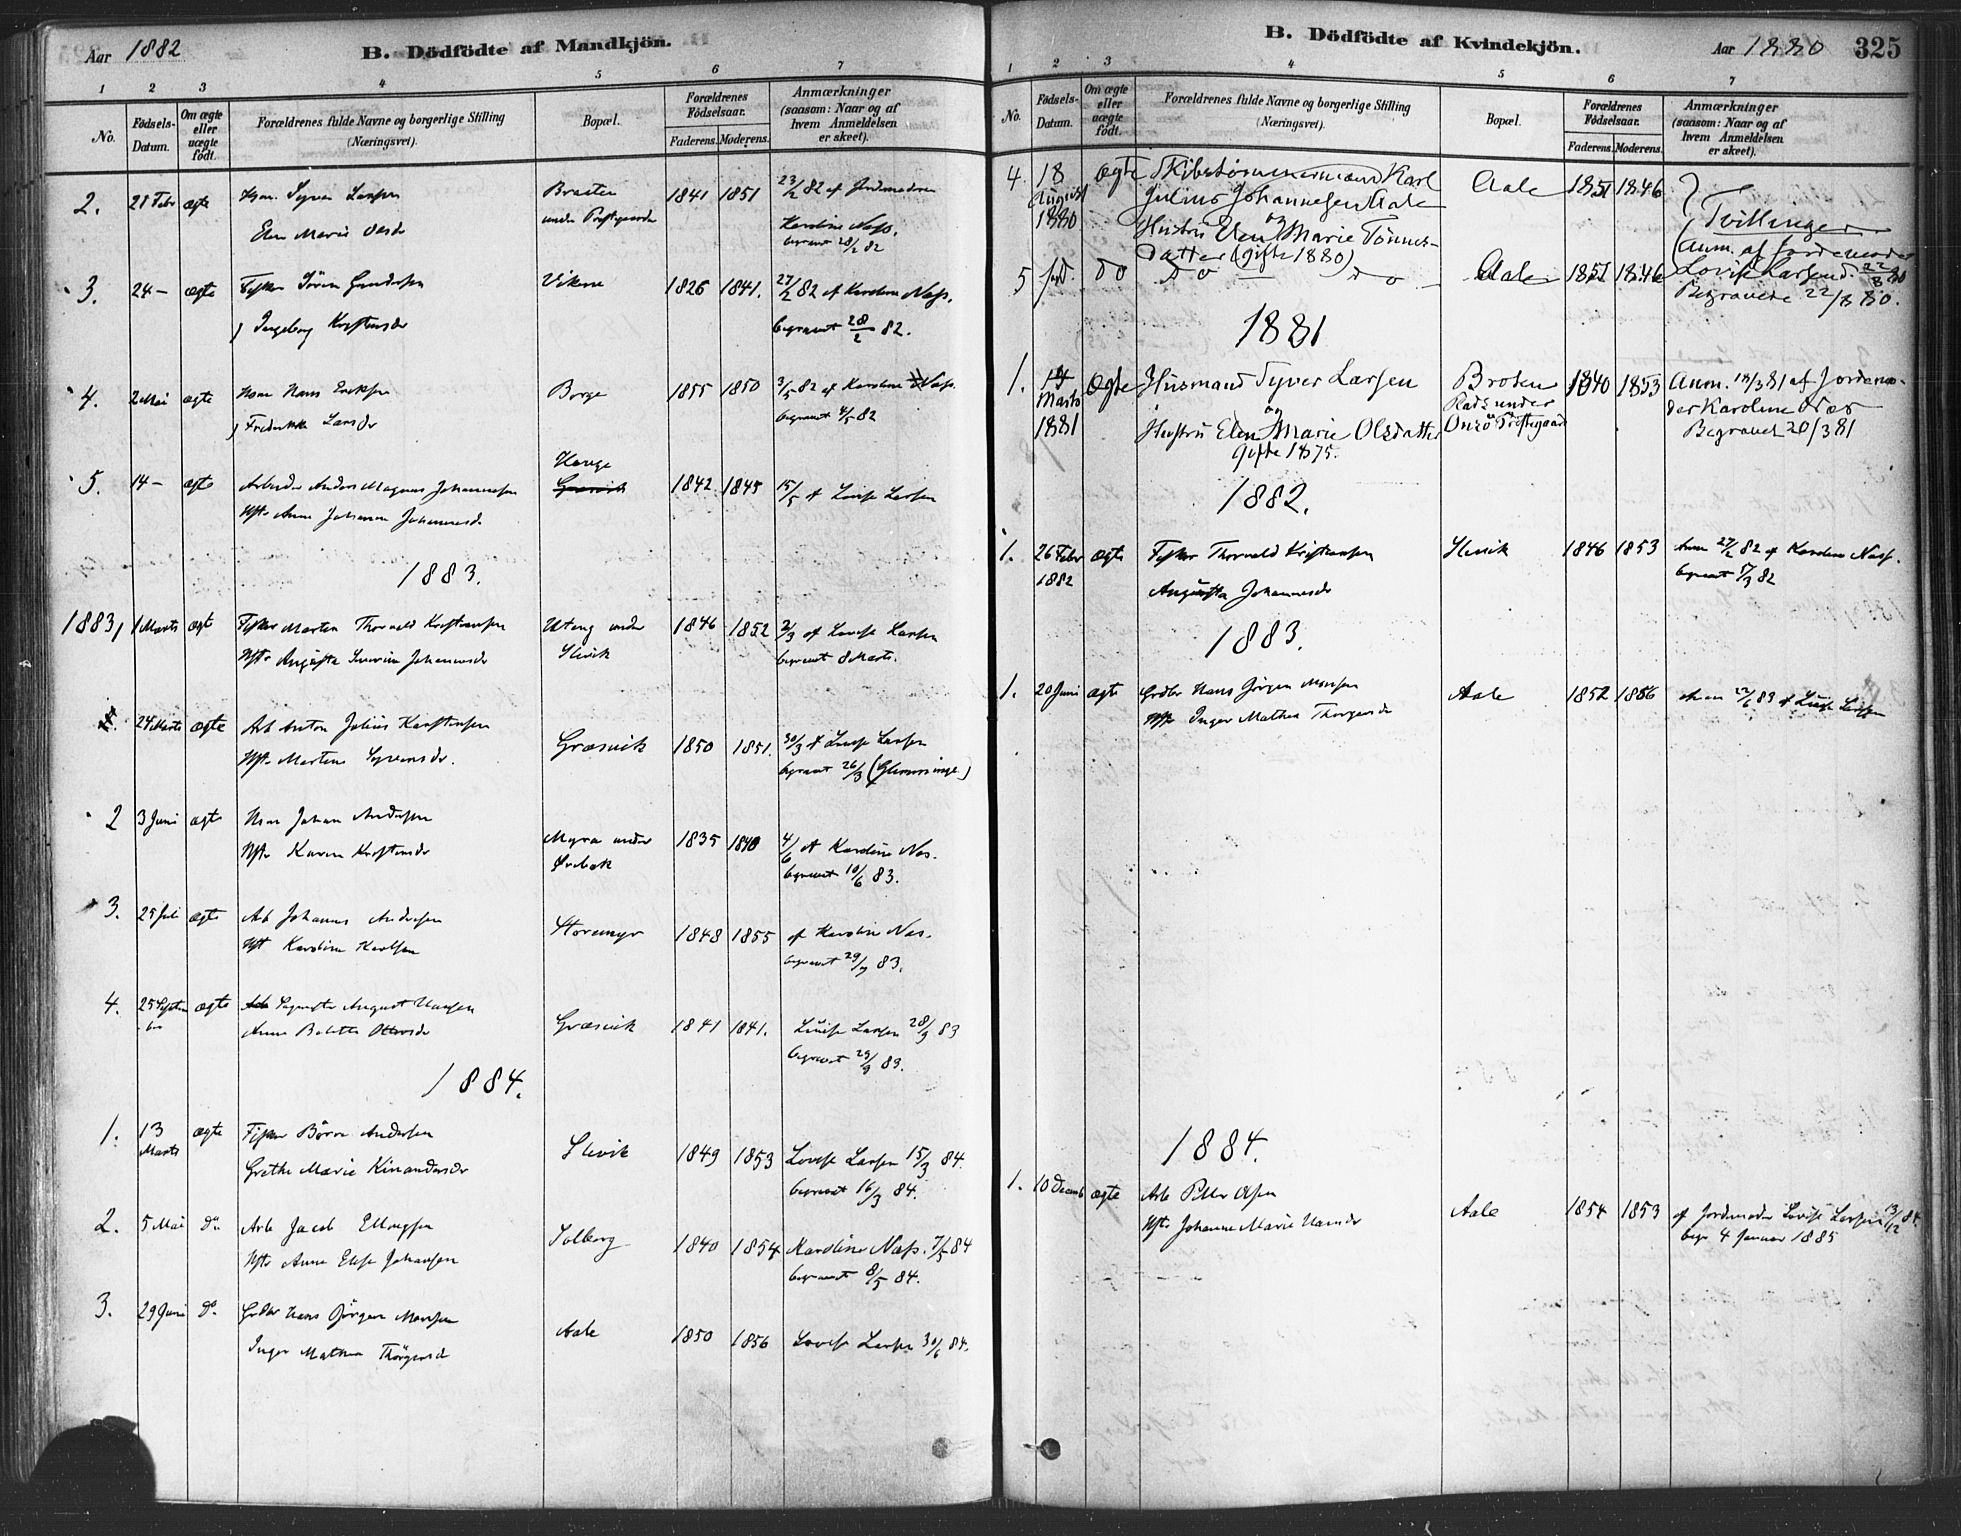 Aar 1882
B. Dödfödte af Mandkjön.
1 2 3 4 5 6 7
No.
Födsels-
Datum.
Om ægte
eller
uægte
født.
Forældrenes fulde Navne og borgerlige Stilling
(Næringsvei).
Bopæl.
Forældrenes
Födselsaar.
Faderens. Moderens.
Anmærkninger
(saasom: Naar og af
hvem Anmeldelsen
er skeet).
2. 21 Febr ægte Hsm. Syver Larsen
Elen Marie Olsdr
Braaten
under Præstgaarden
1841 1851 23/2 82 af Jordmoderen
Karoline Næss.
begravet 28/2 82
3. 24 — ægte Fisker Sören
Ingeborg
Vikene 1826 1841. 27/2 82 af Karoline Næss.
begravet 28/2 82.
4. 2 Mai ægte Hsm Hans Eriksen
Fredrikke Larsdr
Borge 1855 1850 3/5 82 af Karoline Næss
begravet 4/5 82
5. 14 — ægte Arbeider Anders Magnus Johannesen
Hstr Anne Johanne Johannesdr
Hauge
Græsvik
1842 1845 15/5 af Lovise Larsen
1883.
1883, 1 Marts ægte Fisker Martin Thorvald Kristiansen
Hstr Augusta Severine Johannesdr
Uteng under
Slevik
1846 1852 2/3 af Lovise Larsen
begravet 8 Marts.
24 Marts ægte Arb Anton Julius Karstensen
Hstr Martine Syversdr.
Græsvik 1850 1851. 30/3 af Lovise Larsen
begravet 26/3 (Glemminge)
2 3 Juni ægte Hsm Johan Andersen
Hstr Karen
Myra under
Ørebæk
1835 1840 4/6 af Karoline Næs.
begravet 10/6 83.
3. 25 Juli ægte Arb Johannes Andersen
Hst Karoline Karlsen
Storemyr 1848 1855 af Karoline Næs.
begravet 29/7 83.
4. 25 Septem
ber
ægte August Hansen
Anne
Græsvik 1841 1841. Lovise Larsen 28/9 83
begravet 29/9 83.
1884.
1. 13
Marts
ægte Fisker Börre Andersen
Grethe Marie Kinandersdr
Slevik 1849 1853 Lovise Larsen 15/3 84.
begravet 16/3 84.
2. 5 Mai do. Arb Jacob Ellingsen
Hstr Anne Elise Johansen
Solberg 1840 1854 Karoline Næss. 7/5 84
begravet 8/5 84.
3. 29 Juni do. Hans Jörgen Monsen
Inger Mathea Thorgersdr
Aale 1850 1856 Lovise Larsen 30/6 84.
B. Dödfödte af Kvindekjön.
Aar 1880 325
1 2 3 4 5 6 7
No.
Födsels-
Datum.
Om ægte
eller
uægte
født.
Forældrenes fulde Navne og borgerlige Stilling
(Næringsvei).
Bopæl.
Forældrenes
Födselsaar.
Faderens. Moderens.
Anmærkninger
(saasom: Naar og af
hvem Anmeldelsen
er skeet).
4. 18
August
1880
ægte Skibstømmermand Karl
Julius Johannesen Aale
og
Hustru Elen Marie Tönnes-
datter (gifte 1880)
Aale 1851 1846
Tvillinger
(Anm. af Jordemoder
5 do do — do — Aale 1851 1846 Lovise Larsen d. 22/8 80
Begravede 22/8 80.
1881
1. 14
Marts
1881
ægte Husmand Syver Larsen
og
Hustru Elen Marie Olsdatter
gifte 1875.
Broten
Plads under
Onsö Præstegaard
1840 1853 Anm. 18/3 81 af Jordemo-
der Karoline Næs
Begravet 20/3 81
1882.
1. 26 Febr
1882
ægte Fisker Thorvald Kristiansen
Augusta Johannesdr
Slevik 1846 1853 Anm 27/2 82 af Karoline Næss.
begravet 5/3 82
1883.
1. 20 Juni ægte Hans Jörgen Monsen
Hstr Inger Mathea Thorgersdr
Aale 1852 1856 Anm 22/6 83 af Lovise Larsen
1884.
1. 10 Decemb ægte Arb Petter Olsen
Hstr Johanne Marie Hansdr
Aale 1854 1853 af Jordmoder Lovise Larsen 13/12 84.
begr 4 Januar 1885